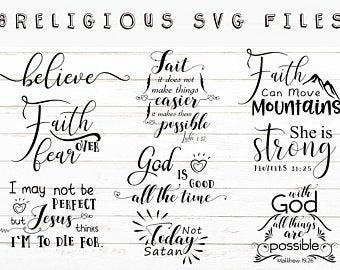 8RELIGIOUS SVG FILES
believe
Fait
it does not
make things
easier
it makes them
possible
Luke 1:37
Faith
Can Move
Mountains
Faith
OVER
fear
God
IS
GOOD
all the time
She is
strong
PROVERBS 31:25
I may not be
PERFECT
but Jesus thinks
I'M TO DIE FOR.
Not
Today
Satan
with
God
all things
are
possible
Matthew 19:26